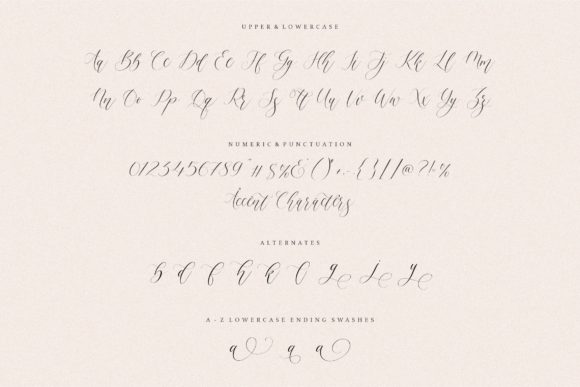 UPPER & LOWERCASE
Aa Bb Cc Dd Ee Ff Gg Hh Ii Jj Kk Ll Mm
Nn Oo Pp Qq Rr Ss Tt Uu Vv Ww Xx Yy Zz
NUMERIC & PUNCTUATION
0123456789 " # $ % & ' ( ) * + , - { } / [ ] @ ? ! . %
Accent Characters
ALTERNATES
b d f h k l g j y
A - Z LOWERCASE ENDING SWASHES
a a a